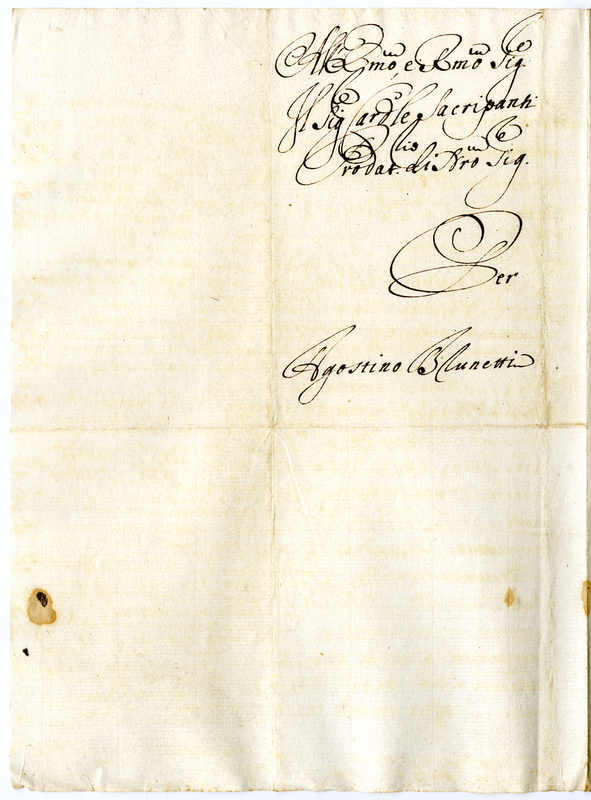 All' Em̃o, e Rm̃o Sig.re
Il Sig.re Card.le Sacripanti
Prodat.rio di Nr̃o Sig.re
Per
Agostino Brunetti